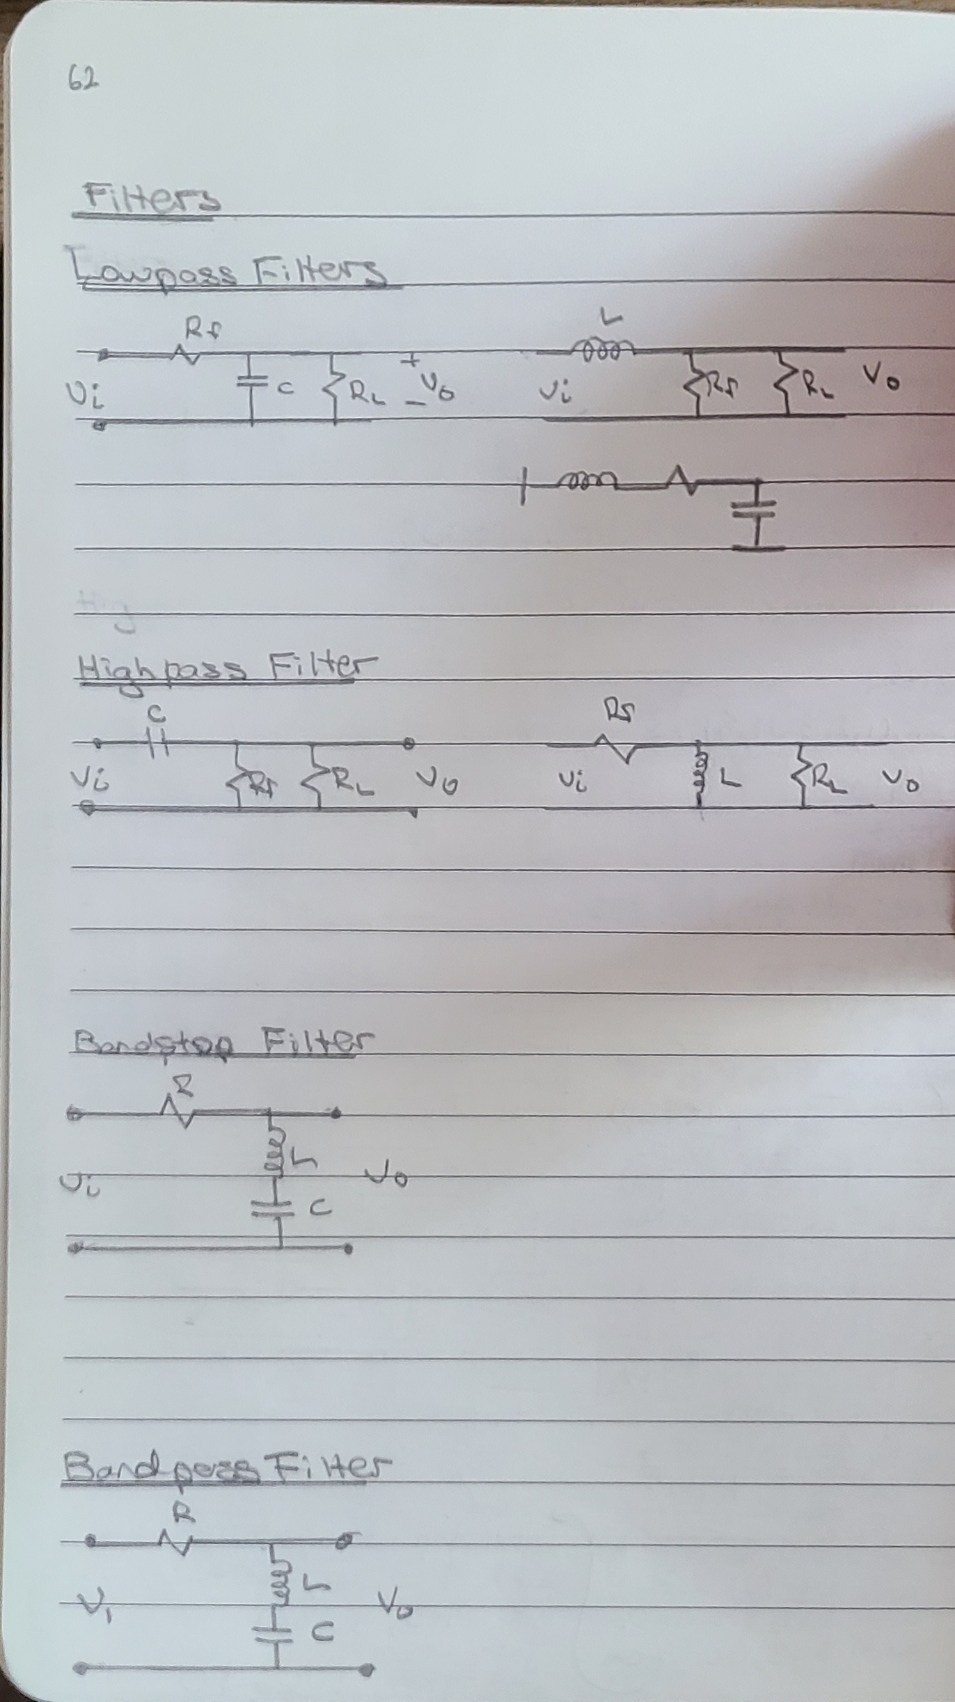 62
Filters
Lowpass Filters
Rf
L
Vi C RL + - Vo
Vi Rf RL Vo
Highpass Filter
C
Rf
Vi Rf RL Vo
Vi L RL Vo
Bandstop Filter
R
L
Vi Vo
C
Bandpass Filter
R
L
Vi Vo
C